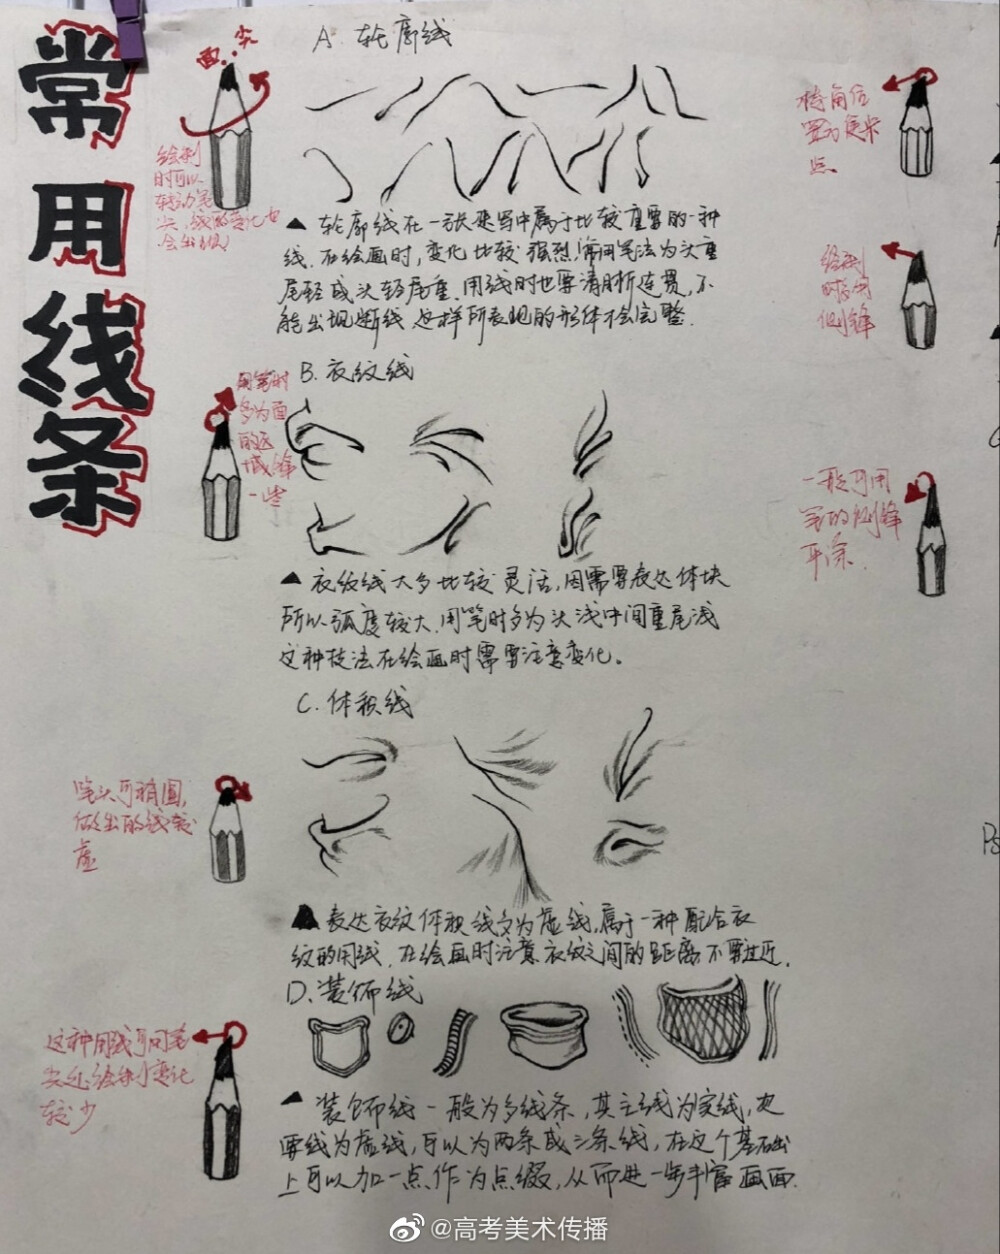 常用线条
A. 轮廓线
面..尖
绘制
时可以
转动笔
尖,线的变化也
会出现
▲ 轮廓线在一张速写中属于比较重要的一种
线.在绘画时,变化比较强烈,常用笔法为头重
尾轻或头轻尾重.用线时也要清晰连贯,不
能出现断线 这样所表现的形体才会完整.
棱角位
置为使
点.
绘制
时多用
侧锋
B. 衣纹线
用笔时
多为面
的区
域,锋
一些
▲ 衣纹线大多比较灵活,因需要表达体块
所以弧度较大.用笔时多为头浅中间重尾浅
这种技法在绘画时需要注意变化。
一般可用
笔的侧锋
平涂.
C. 体积线
笔头可稍圆,
做出的线较
虚
▲ 表达衣纹体积线多为虚线,属于一种配合衣
纹的用线.在绘画时注意衣纹之间的距离不要过近.
D. 装饰线
这种用线可用笔
尖处绘制变化
较少
▲ 装饰线一般为多线条,其主线为实线,次
要线为虚线,可以为两条或三条线,在这个基础
上可以加一点作为点缀,从而进一步丰富画面.
Ps
@高考美术传播